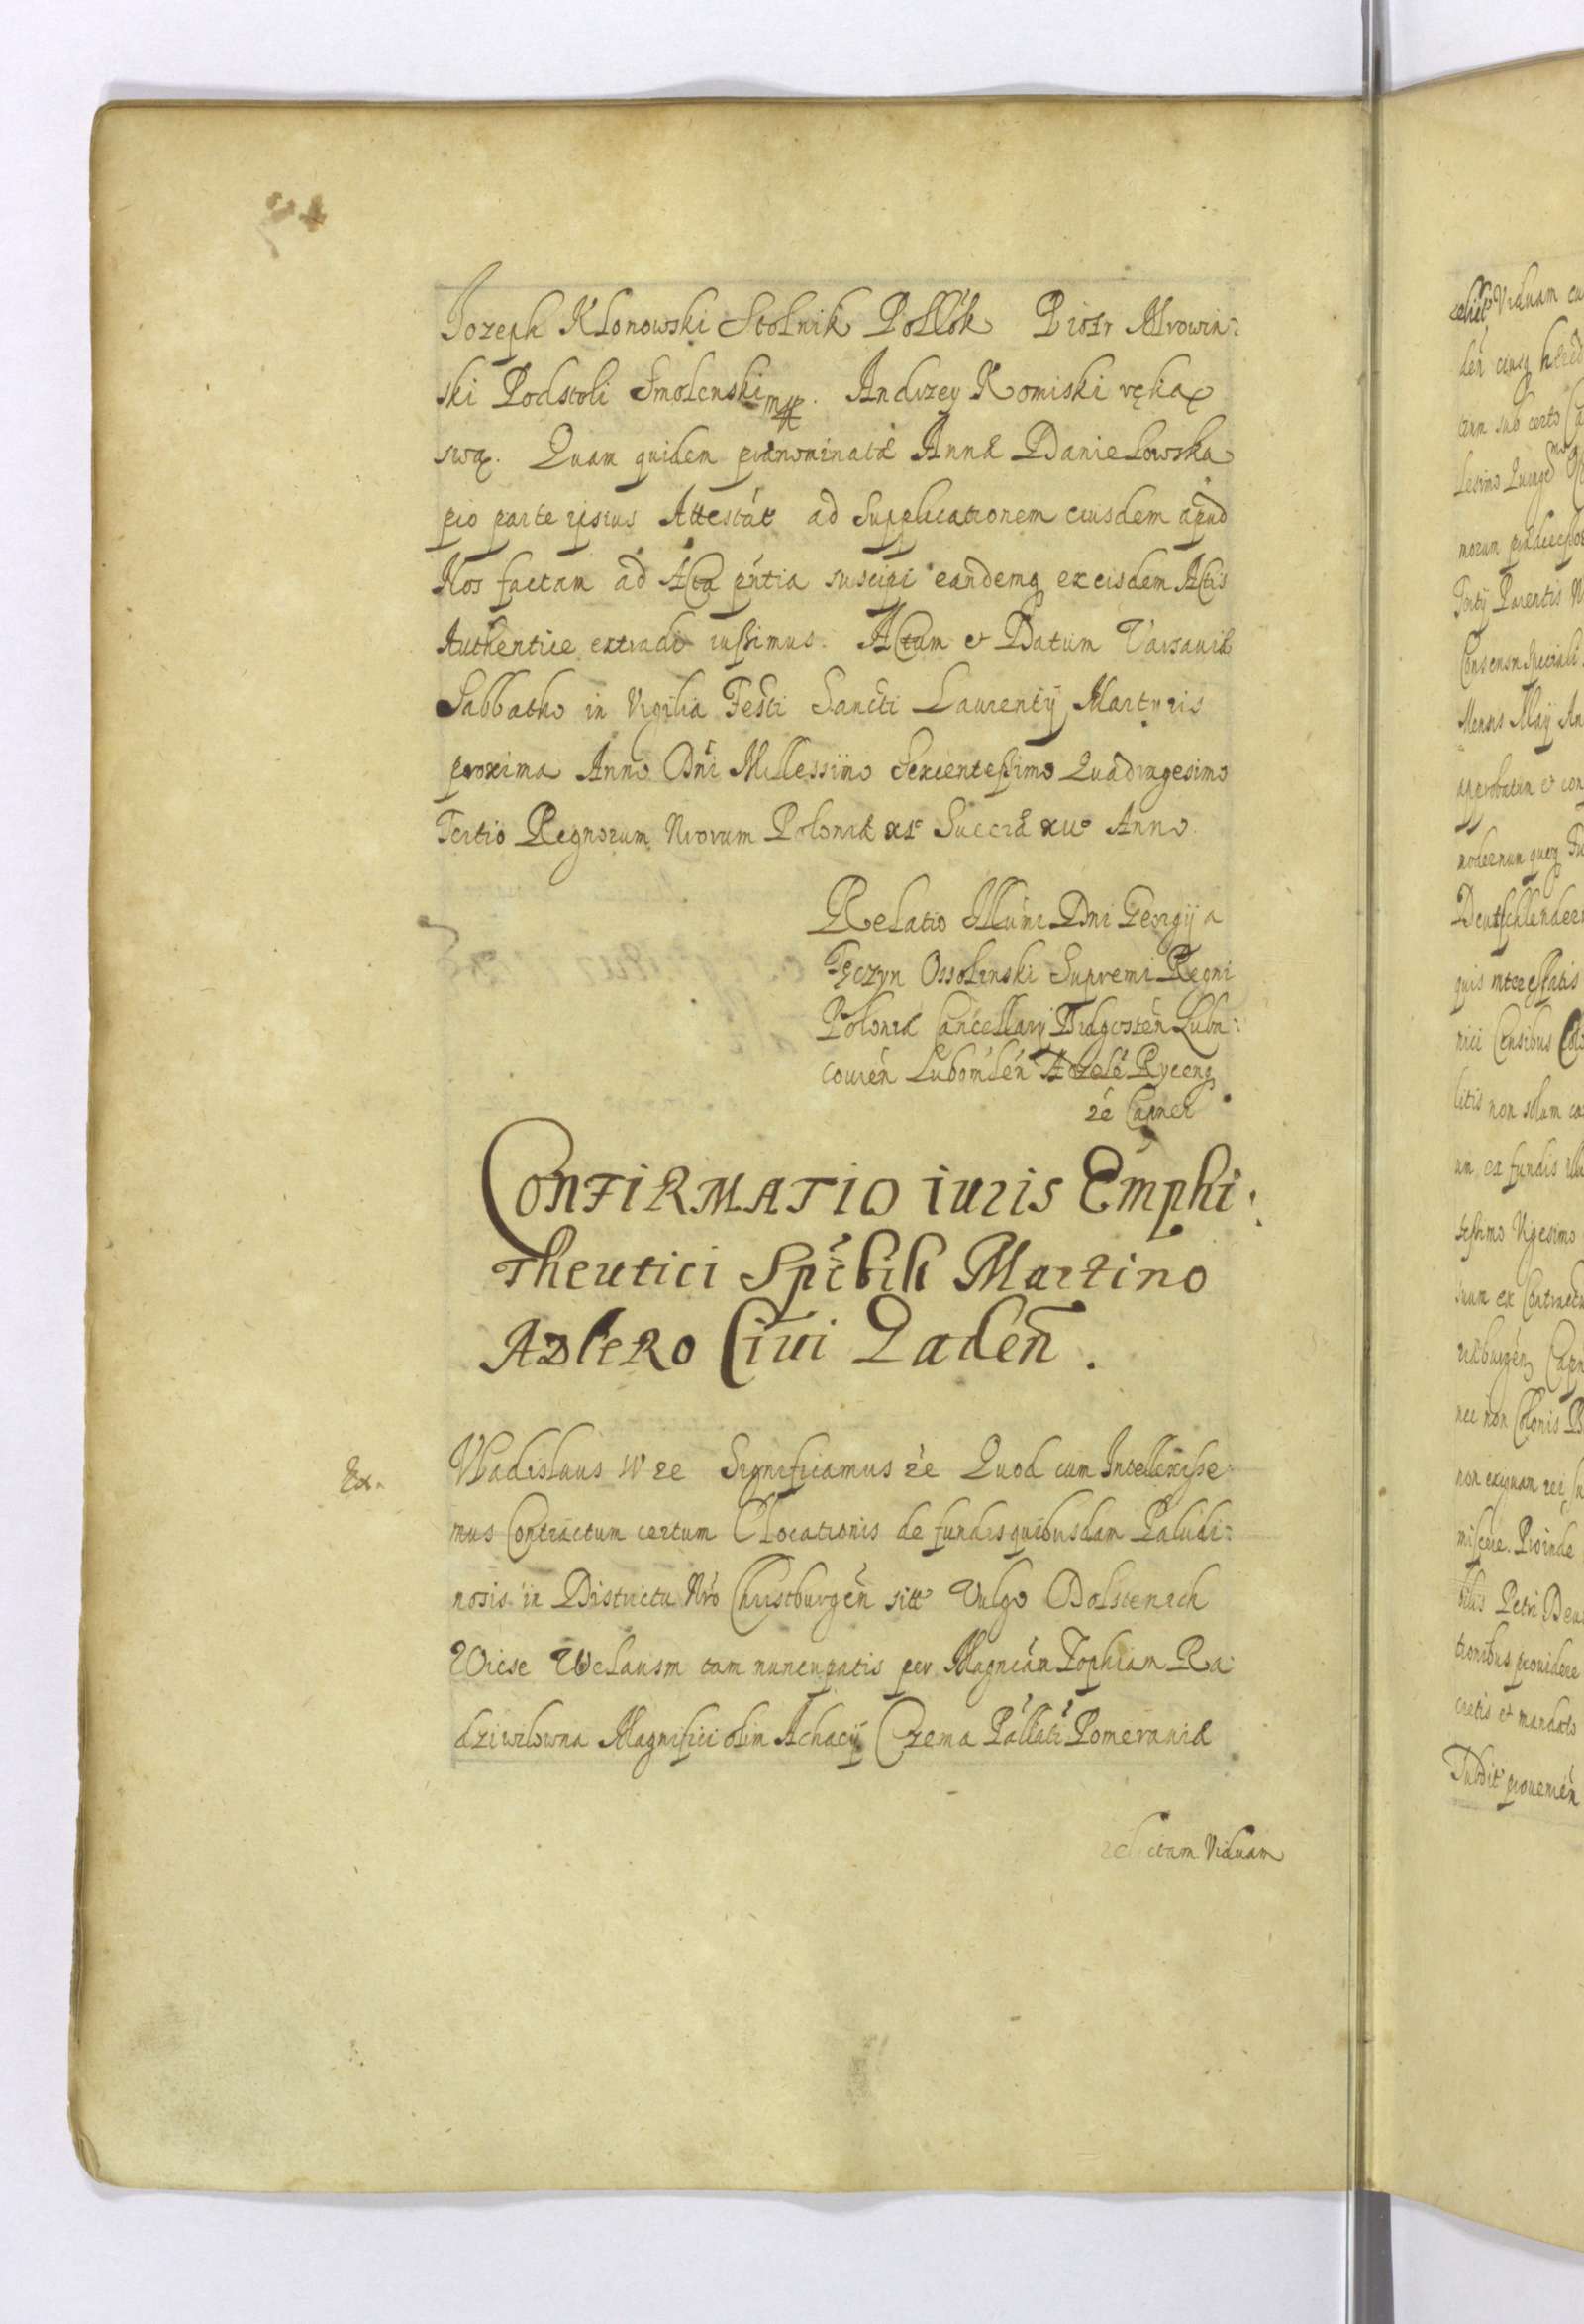 Jozeph Klonowski Stolnik Pollók Piotr Mrowin:
ski Podstoli Smolenski mpp. Andrzey Komiski ręką
swą. Quam quidem prænominatæ Annæ Danielowska
pro parte ipsius Attestát ad Supplicationem eiusdem apud
Nos factam ad Acta pńtia suscipi eandemq ex eisdem Actis
Authentice extradi iussimus. Actum et Datum Varsaviæ
Sabbatho in Vigilia Festi Sancti Laurentÿ Martyris
proxima Anno Dńi Millessimo Sexcentessimo Quadragesimo
Tertio Regnorum Nrorum Poloniæ XI° Sueciæ XII° Anno.
Relatio Illúmi Dni Georgij a
Tęczyn Ossolinski Supremi Regni
Poloniæ Cancellarÿ Bidgosteń Lubn:
covień Lubomleń Adzelé Ryceng
ré Capnei
Confirmatio iuris Emphi:
theutici Spćbili Martino
Adlero Civi Gadeñ.
Ex.
Vladislaus IV re Significamus ré Quod cum Intellexisse:
mus Contractum certum Elocationis de fundis quibusdam Paludi:
nosis in Districtu Nro Christburgeń sitt Vulgo Dolstenich
Wiese Welausm tam nuncupatis per Magnicám Zophiam Ra:
dziwilowna Magnifici olim Achacÿ Czema Pállati Pomeraniæ
relictam Viduam
relict Viduam cu
leń eiusq hæred
tum sub certo Ca
lesimo Quinge
morum prædecesso
Tertÿ Parentis N
Consensu Speciali
Mensis Maÿ An
approbatum et con
modernum quoq Fu
Deutschlender
quis interessatis
nici Censibus Colo
litis non solum ca
um ex fundis ill
tessimo Vigesimo
suum ex Contractu
rieburgeń Capn
nec non Colonis B
non exiguam rei su
miscere. Proinde
bilis Petri Deu
tionibus providere
cretis et mandato
Subdit provenień